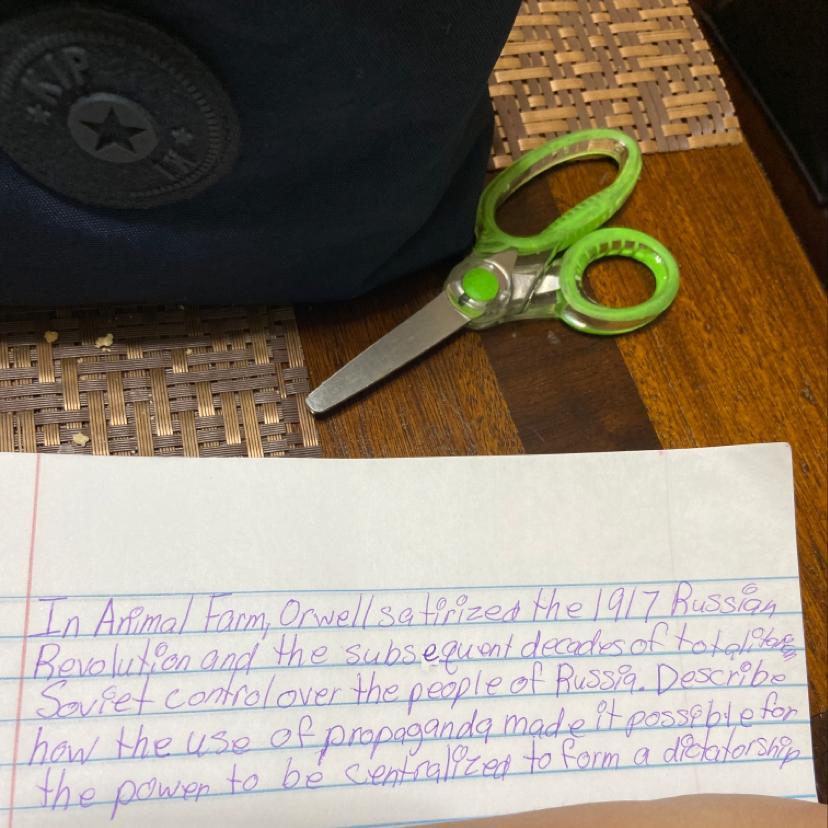 KIP
In Animal Farm, Orwell satirized the 1917 Russian
Revolution and the subsequent decades of totalitarian
Soviet control over the people of Russia. Describe
how the use of propaganda made it possible for
the power to be centralized to form a dictatorship